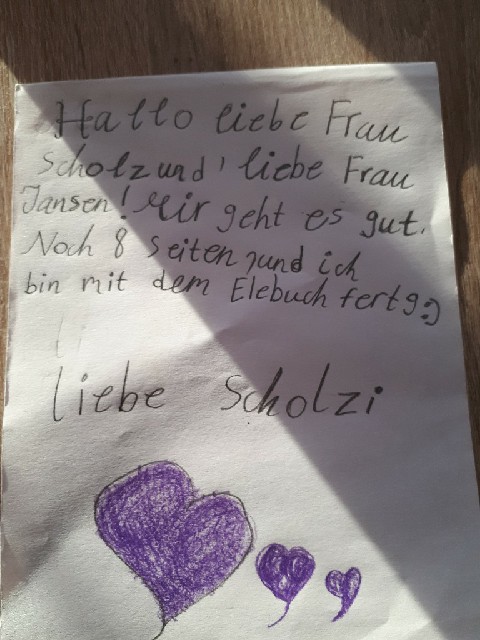 Hallo liebe Frau
Scholz und liebe Frau
Jansen! Mir geht es gut.
Noch 8 Seiten und ich
bin mit dem Elebuch fertg :)
liebe Scholzi